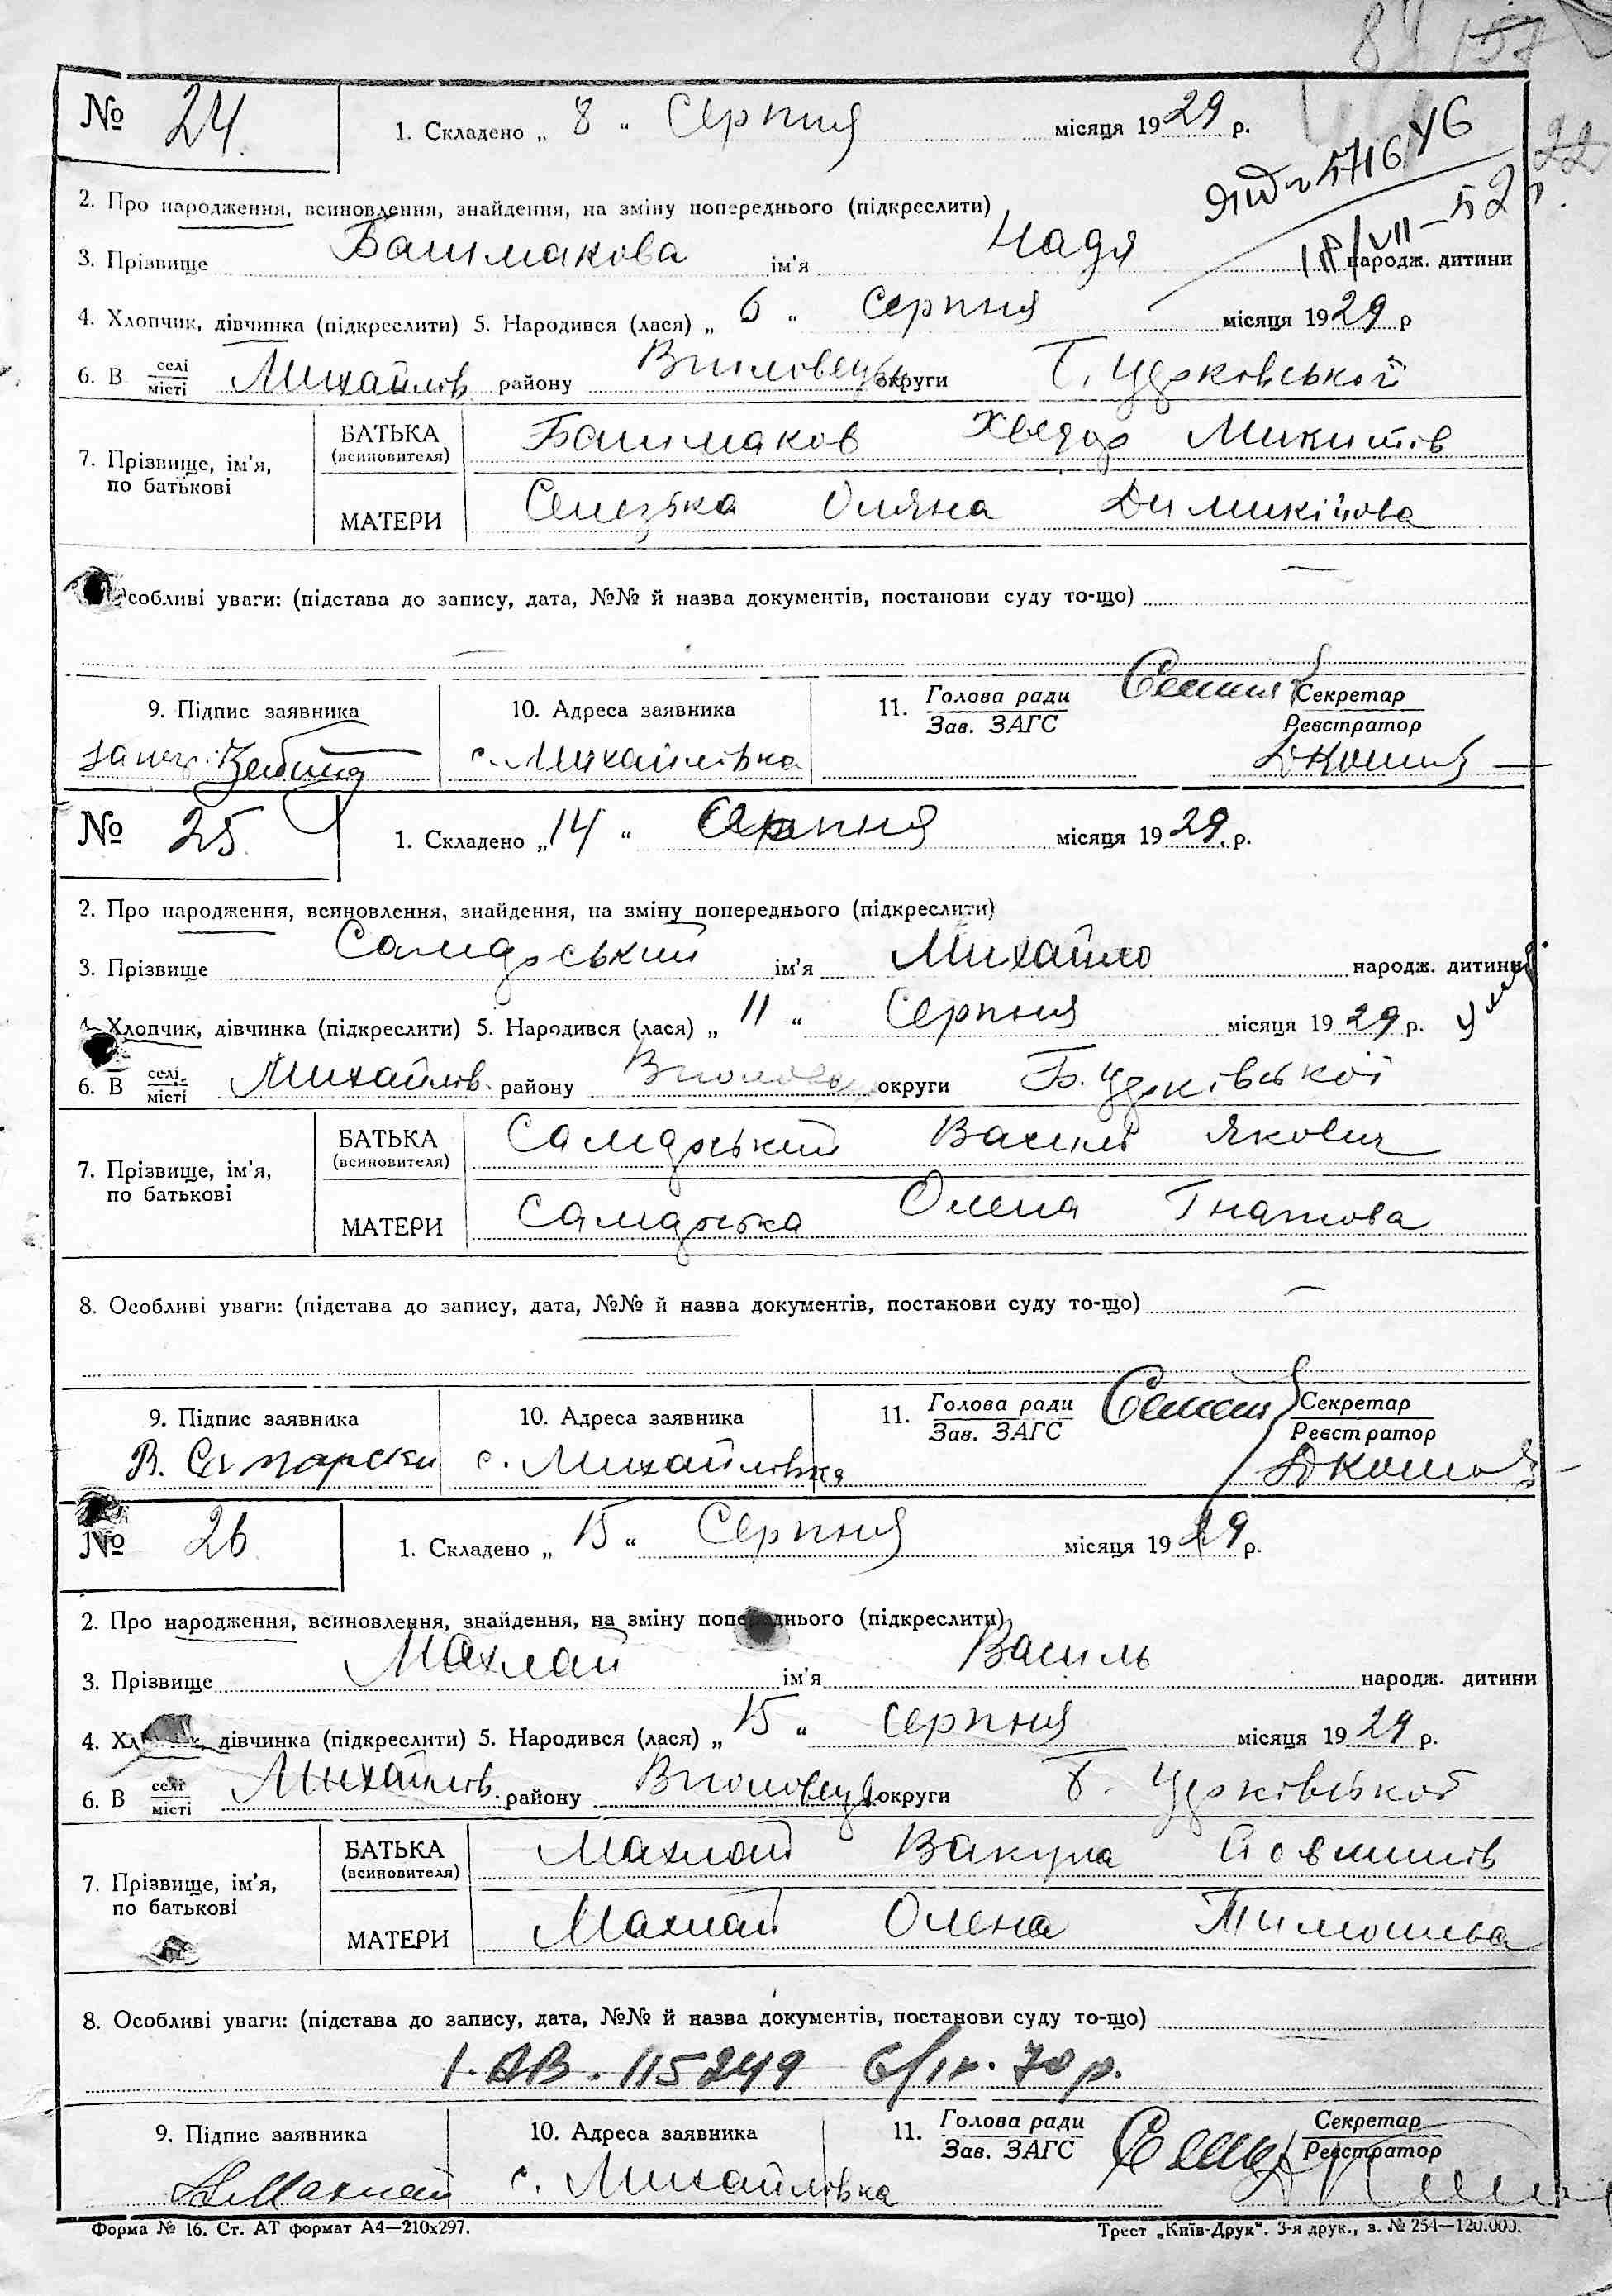 № 24. 1. Складено „ 8 “ Серпня місяця 1929 р.
18/VII–52 р.
2. Про народження, всиновлення, знайдення, на зміну попереднього (підкреслити)
3. Прізвище Башмакова ім'я Надя народж. дитини
4. Хлопчик, дівчинка (підкреслити) 5. Народився (лася) „ 6 “ Серпня місяця 1929 р
6. В селі/місті Михайлів району округи Б. Церковської
7. Прізвище, ім'я, по батькові
БАТЬКА (всиновителя) Башмаков Хведор Микитів
МАТЕРИ Уляна
собливі уваги: (підстава до запису, дата, №№ й назва документів, постанови суду то-що)
9. Підпис заявника 10. Адреса заявника 11. Голова ради Секретар
Зав. ЗАГС Реєстратор
с. Михайлівка
№ 25. 1. Складено „ 14 “ Серпня місяця 1929. р.
2. Про народження, всиновлення, знайдення, на зміну попереднього (підкреслити)
3. Прізвище Самарський ім'я Михайло народж. дитини
4. Хлопчик, дівчинка (підкреслити) 5. Народився (лася) „ 11 “ Серпня місяця 1929 р.
6. В селі/місті Михайлів. району округи Б. Церківської
7. Прізвище, ім'я, по батькові
БАТЬКА (всиновителя) Самарський Василь Якович
МАТЕРИ Самарська Олена Гнатова
8. Особливі уваги: (підстава до запису, дата, №№ й назва документів, постанови суду то-що)
9. Підпис заявника 10. Адреса заявника 11. Голова ради Секретар
Зав. ЗАГС Реєстратор
В. Самарски с. Михайлівка
№ 26 1. Складено „ 15 “ Серпня місяця 1929 р.
2. Про народження, всиновлення, знайдення, на зміну попереднього (підкреслити)
3. Прізвище Махлай ім'я Василь народж. дитини
4. дівчинка (підкреслити) 5. Народився (лася) „ 15 “ серпня місяця 1929 р.
6. В селі/місті Михайлів. району округи Б. Церківської
7. Прізвище, ім'я, по батькові
БАТЬКА (всиновителя) Махлай Вакула
МАТЕРИ Махлай Олена Тимошева
8. Особливі уваги: (підстава до запису, дата, №№ й назва документів, постанови суду то-що)
115249
9. Підпис заявника 10. Адреса заявника 11. Голова ради Секретар
Зав. ЗАГС Реєстратор
Махлай с. Михайлівка
Форма № 16. Ст. АТ формат А4—210х297. Трест „Київ-Друк“. 3-я друк., з. № 254—120.000.